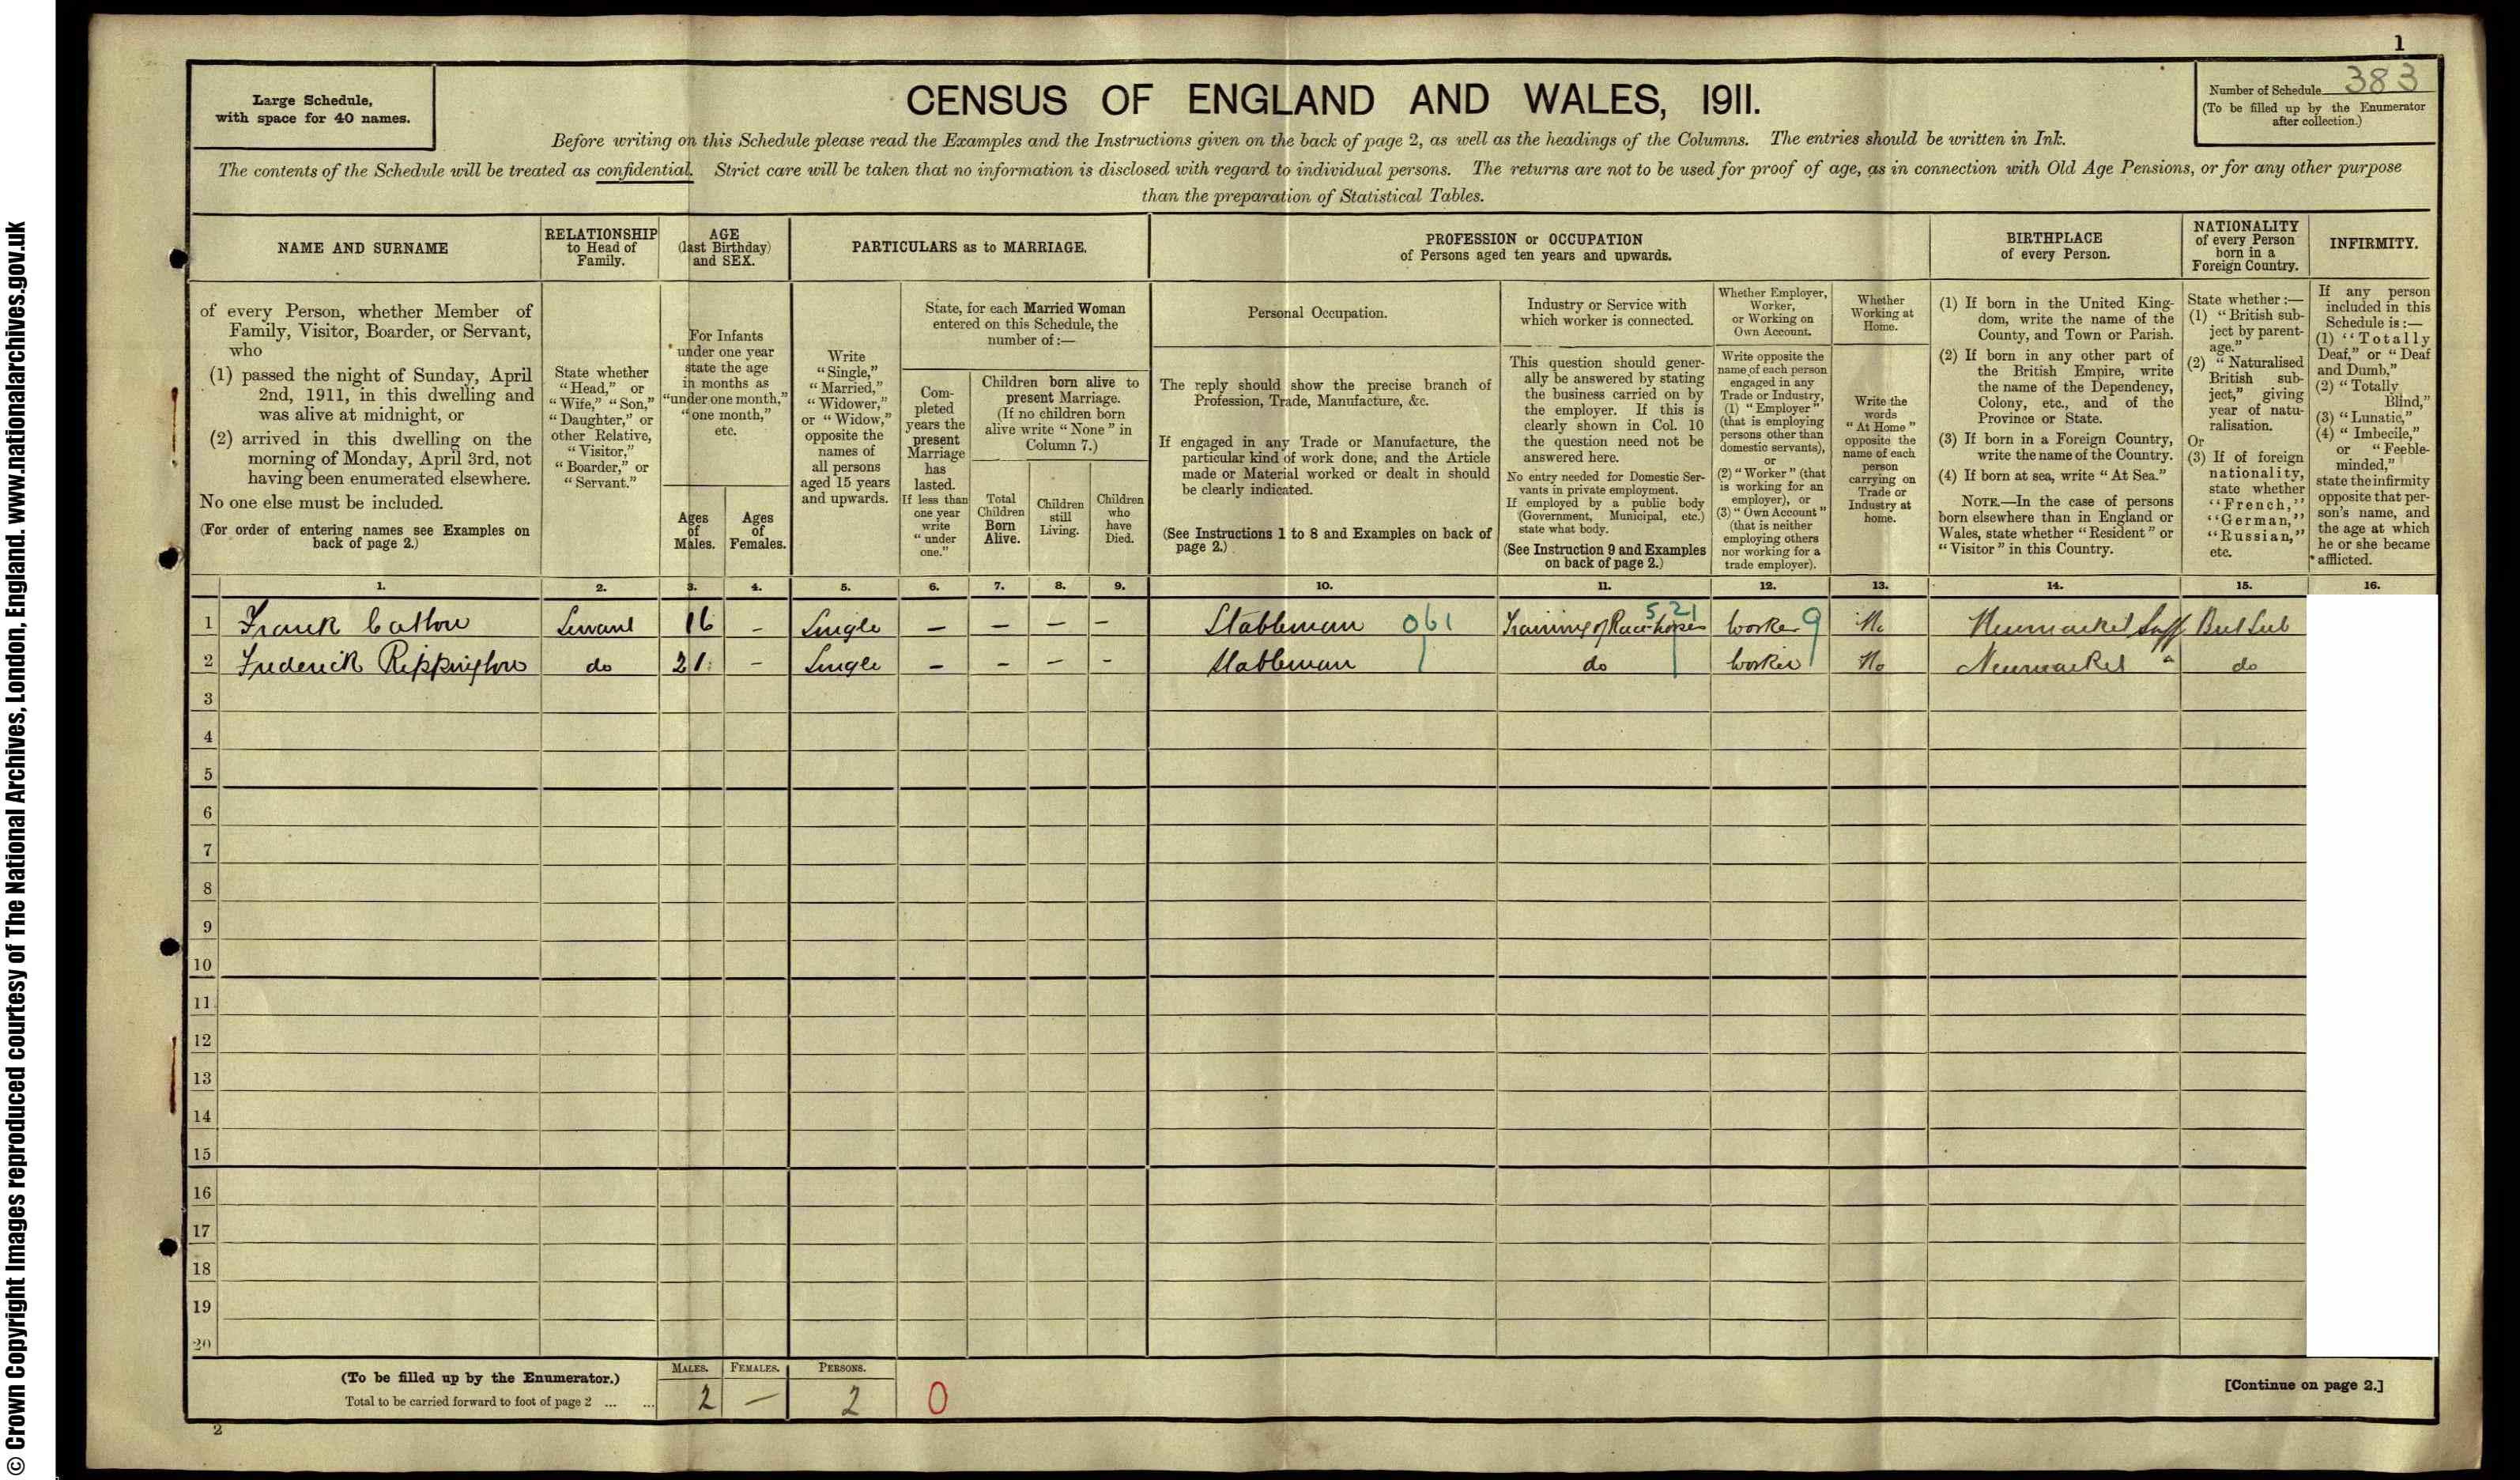 1
Large Schedule,
with space for 40 names.
CENSUS OF ENGLAND AND WALES, 1911.
Number of Schedule 383
(To be filled up by the Enumerator
after collection.)
Before writing on this Schedule please read the Examples and the Instructions given on the back of page 2, as well as the headings of the Columns. The entries should be written in Ink.
The contents of the Schedule will be treated as confidential. Strict care will be taken that no information is disclosed with regard to individual persons. The returns are not to be used for proof of age, as in connection with Old Age Pensions, or for any other purpose
than the preparation of Statistical Tables.
NAME AND SURNAME
of every Person, whether Member of
Family, Visitor, Boarder, or Servant,
who
(1) passed the night of Sunday, April
2nd, 1911, in this dwelling and
was alive at midnight, or
(2) arrived in this dwelling on the
morning of Monday, April 3rd, not
having been enumerated elsewhere.
No one else must be included.
(For order of entering names see Examples on
back of page 2.)
RELATIONSHIP
to Head of
Family.
State whether
"Head," or
"Wife," "Son,"
"Daughter," or
other Relative,
"Visitor,"
"Boarder," or
"Servant."
AGE
(last Birthday)
and SEX.
For Infants
under one year
state the age
in months as
"under one month,"
"one month,"
etc.
Ages
of
Males.
Ages
of
Females.
PARTICULARS as to MARRIAGE.
Write
"Single,"
"Married,"
"Widower,"
or "Widow,"
opposite the
names of
all persons
aged 15 years
and upwards.
State, for each Married Woman
entered on this Schedule, the
number of :—
Com-
pleted
years the
present
Marriage
has
lasted.
If less than
one year
write
"under
one."
Children born alive to
present Marriage.
(If no children born
alive write "None" in
Column 7.)
Total
Children
Born
Alive.
Children
still
Living.
Children
who
have
Died.
PROFESSION or OCCUPATION
of Persons aged ten years and upwards.
Personal Occupation.
The reply should show the precise branch of
Profession, Trade, Manufacture, &c.
If engaged in any Trade or Manufacture, the
particular kind of work done, and the Article
made or Material worked or dealt in should
be clearly indicated.
(See Instructions 1 to 8 and Examples on back of
page 2.)
Industry or Service with
which worker is connected.
This question should gener-
ally be answered by stating
the business carried on by
the employer. If this is
clearly shown in Col. 10
the question need not be
answered here.
No entry needed for Domestic Ser-
vants in private employment.
If employed by a public body
(Government, Municipal, etc.)
state what body.
(See Instruction 9 and Examples
on back of page 2.)
Whether Employer,
Worker,
or Working on
Own Account.
Write opposite the
name of each person
engaged in any
Trade or Industry,
(1) "Employer"
(that is employing
persons other than
domestic servants),
or
(2) "Worker" (that
is working for an
employer), or
(3) "Own Account"
(that is neither
employing others
nor working for a
trade employer).
Whether
Working at
Home.
Write the
words
"At Home"
opposite the
name of each
person
carrying on
Trade or
Industry at
home.
BIRTHPLACE
of every Person.
(1) If born in the United King-
dom, write the name of the
County, and Town or Parish.
(2) If born in any other part of
the British Empire, write
the name of the Dependency,
Colony, etc., and of the
Province or State.
(3) If born in a Foreign Country,
write the name of the Country.
(4) If born at sea, write "At Sea."
NOTE.—In the case of persons
born elsewhere than in England or
Wales, state whether "Resident" or
"Visitor" in this Country.
NATIONALITY
of every Person
born in a
Foreign Country.
State whether :—
(1) "British sub-
ject by parent-
age."
(2) "Naturalised
British sub-
ject," giving
year of natu-
ralisation.
Or
(3) If of foreign
nationality,
state whether
"French,"
"German,"
"Russian,"
etc.
INFIRMITY.
If any person
included in this
Schedule is :—
(1) "Totally
Deaf," or "Deaf
and Dumb,"
(2) "Totally
Blind,"
(3) "Lunatic,"
(4) "Imbecile,"
or "Feeble-
minded,"
state the infirmity
opposite that per-
son's name, and
the age at which
he or she became
afflicted.
1. 2. 3. 4. 5. 6. 7. 8. 9. 10. 11. 12. 13. 14. 15. 16.
1 Frank Catton Servant 16 – Single – – – – Stableman 061 Training of Race-horses 521 Worker 9 No Newmarket Suff Brit Sub
2 Frederick Rippington do 21 – Single – – – – Stableman do Worker No Newmarket do
3
4
5
6
7
8
9
10
11
12
13
14
15
16
17
18
19
20
(To be filled up by the Enumerator.)
Total to be carried forward to foot of page 2 ... ...
MALES. FEMALES. PERSONS.
2 – 2 0
[Continue on page 2.]
2
© Crown Copyright Images reproduced courtesy of The National Archives, London, England. www.nationalarchives.gov.uk